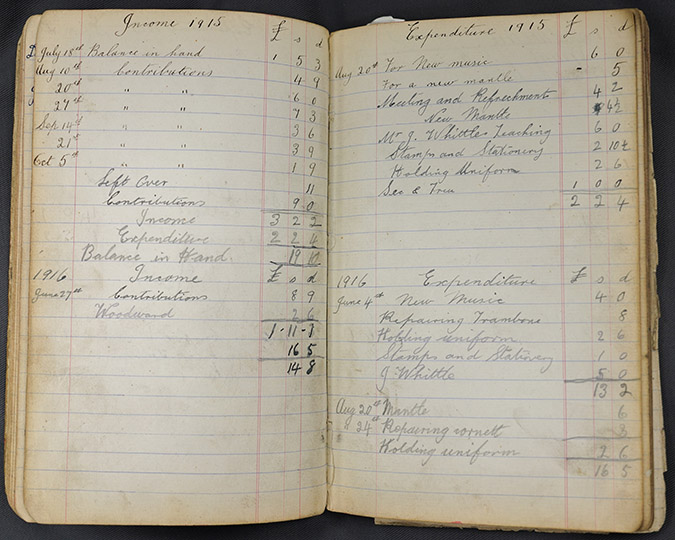 Income 1915 £ s d
July 18th Balance in hand 1 5 3
Aug 10th Contributions 4 9
20th " " 6 0
27th " " 7 3
Sep 14th " " 3 6
21st " " 3 9
Oct 5th " " 1 9
Left Over 11
Contributions 9 0
Income 3 2 2
Expenditure 2 2 4
Balance in Hand. 19 10
1916 Income £ s d
June 27th Contributions 8 9
Woodward 2 6
1-11-1
16 5
14 8
Expenditure 1915 £ s d
Aug 20th For New music 6 0
For a new mantle - 5
Meeting and Refreshment 4 2
New Mantle 4½
Mr J. Whittles Teaching 6 0
Stamps and Stationery 2 10½
Holding Uniform 2 6
Sec & Treu 1 0 0
2 2 4
1916 Expenditure £ s d
June 4th New Music 4 0
Repairing Trombone 8
Holding uniform 2 6
Stamps and Stationery 1 0
J. Whittle 5 0
13 2
Aug 20th Mantle 6
" 24th Repairing cornett 3
Holding uniform 2 6
16 5